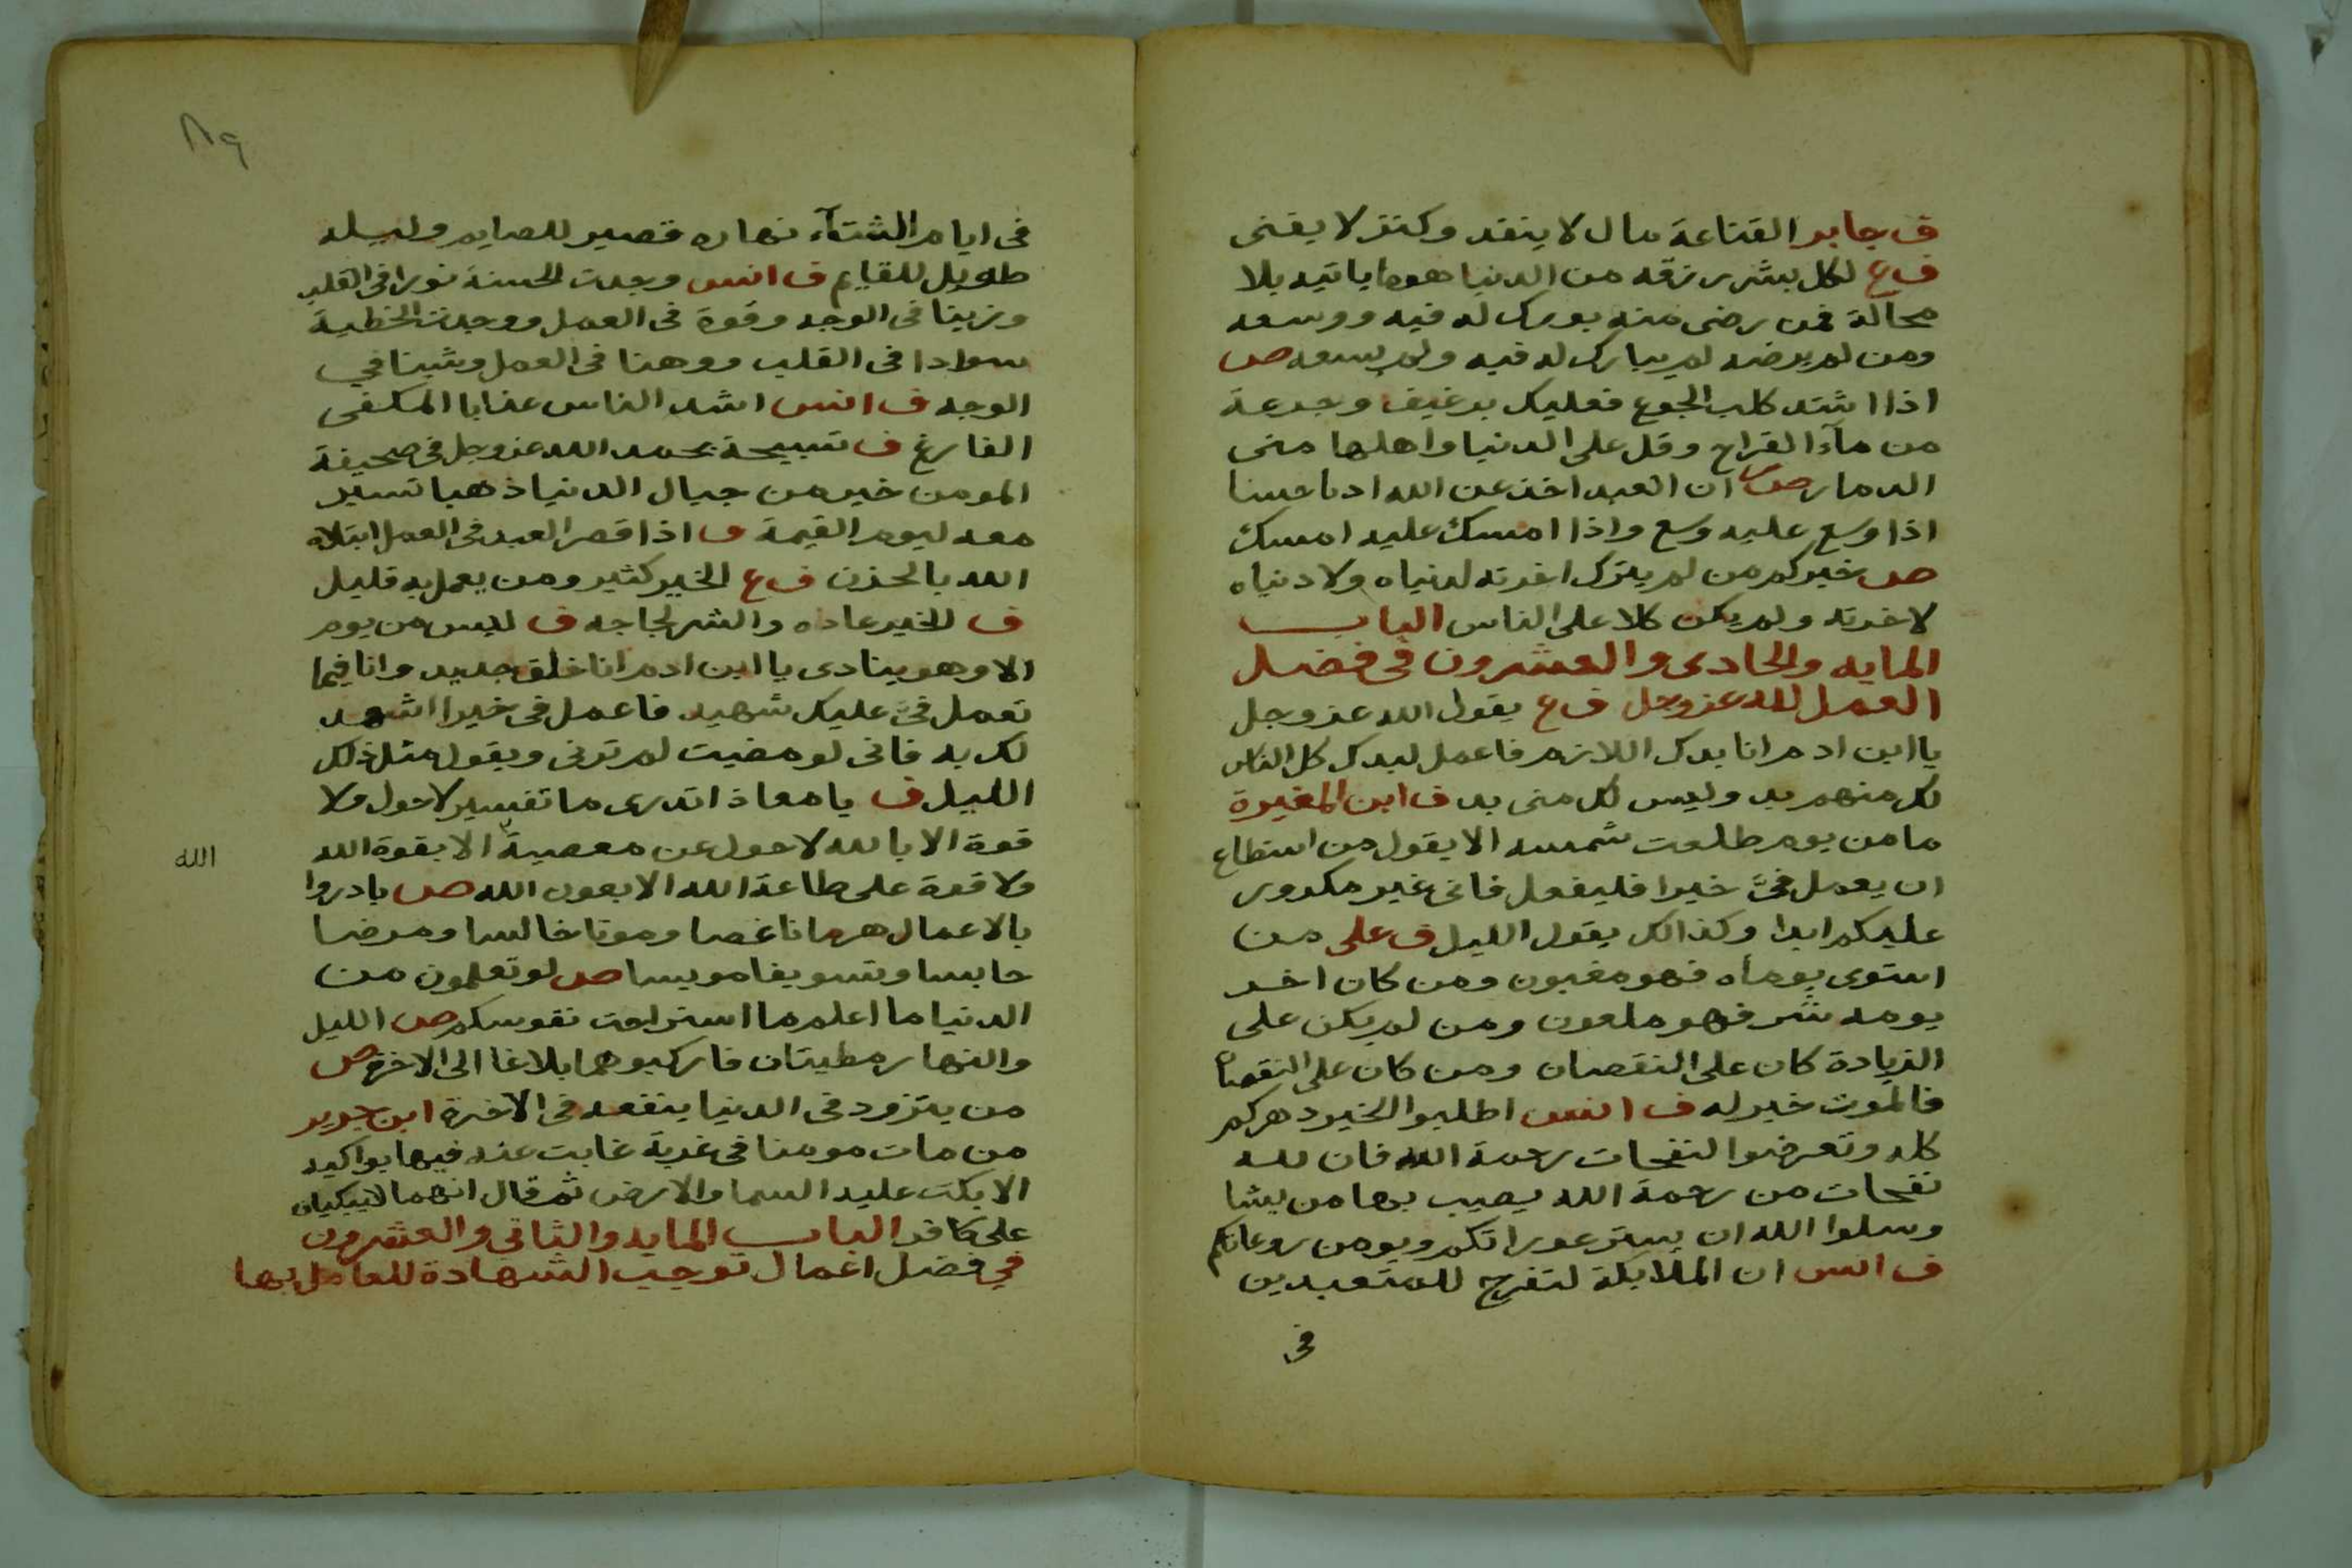 ف جابر القناعة مال لا ينفد وكنز لا يفنى
ف ع لكل بشر رزقه من الدنيا هوما ياتيه بلا
محالة فمن رضى منه بورك له فيه ووسعه
ومن لم يرضه لم يبارك له فيه ولم يسعه ص
اذا اشتد كلب الجوع فعليك برغيف وجرعة
من مآء القراح وقل على الدنيا واهلها منى
الدمار ص ان العبد اخذ عن الله ادبا حسنا
اذا وسع عليه وسع واذا امسك عليه امسك
ص خيركم من لم يترك اخرته لدنياه ولا دنياه
لاخرته ولم يكن كلا على الناس الباب
المايه والحادى والعشرون فى فضل
العمل لله عز وجل ف ع يقول الله عز وجل
يا ابن ادم انا بدك اللازم فاعمل لبدك كل الناس
لك منهم بد وليس لك منى بد ف ابن المغيرة
ما من يوم طلعت شمسه الا يقول من استطاع
ان يعمل فىّ خيرا فليفعل فانى غير مكرور
عليكم ابدا وكذالك يقول الليل ف على من
استوى يوماه فهو مغبون ومن كان اخر
يومه شر فهو ملعون ومن لم يكن على
الزيادة كان على النقصان ومن كان على النقصان
فالموت خير له ف انس اطلبوا الخير دهركم
كله وتعرضوا لنفحات رحمة الله فان لله
نفحات من رحمة الله يصيب بها من يشا
وسلوا الله ان يستر عوراتكم ويومن روعاتكم
ف انس ان الملايكة لتفرح للمتعبدين
فى
٨٩
فى ايام الشتآء نهاره قصير للصايم وليله
طويل للقايم ف انس وجدت الحسنة نورا فى القلب
وزينا فى الوجه وقوة فى العمل ووجدت الخطية
سوادا فى القلب ووهنا فى العمل وشينا في
الوجه ف انس اشد الناس عذابا المكفى
الفارغ ف تسبيحة بحمد الله عز وجل فى صحيفة
المومن خير من جبال الدنيا ذهبا تسير
معه ليوم القيمة ف اذا قصر العبد فى العمل ابتلاه
الله بالحزن ف ع الخير كثير ومن يعمل به قليل
ف الخير عاده والشر لجاجه ف ليس من يوم
الا وهو ينادى يا ابن ادم انا خلق جديد وانا فيما
تعمل فىّ عليك شهيد فاعمل فى خيرا اشهد
لك به فانى لو مضيت لم ترنى ويقول مثل ذلك
الليل ف يا معاذ اتدرى ما تفسير لا حول ولا
قوة الا بالله لا حول عن معصية الا بقوة الله
الله
ولا قوة على طاعة الله الا بعون الله ص بادروا
بالاعمال هرما ناغصا وموتا خالسا ومرضا
حابسا وتسويفا مويسا ص لو تعلمون من
الدنيا ما اعلم ما استراحت نفوسكم ص الليل
والنهار مطيتان فاركبوهما بلاغا الى الاخرة ص
من يتزود فى الدنيا ينفعه فى الاخرة ابن جرير
من مات مومنا فى غربة غابت عنه فيها بواكيه
الا بكت عليه السما والارض ثم قال انهما لا يبكيان
على كافر الباب المايه والثانى والعشرون
في فضل اعمال توجب الشهادة للعامل بها